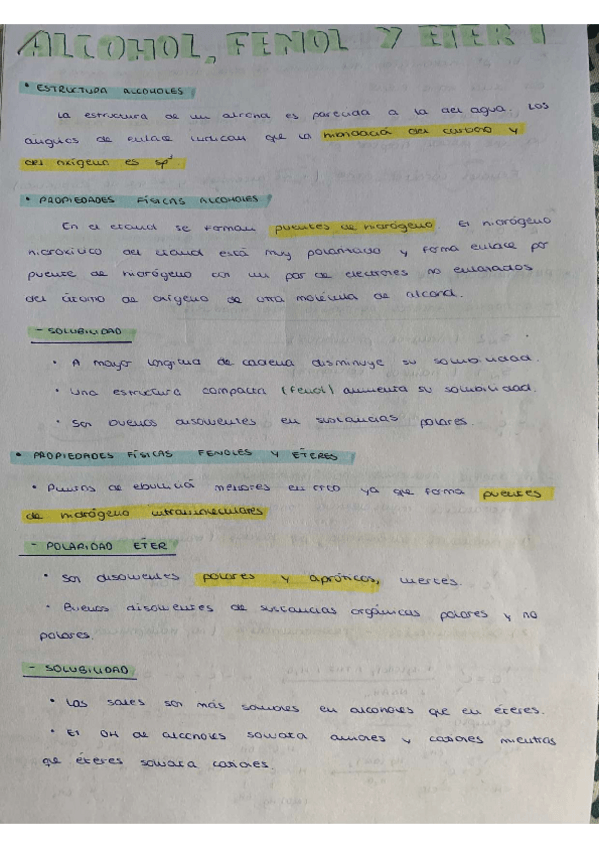 ALCOHOL, FENOL Y ÉTER I
• ESTRUCTURA ALCOHOLES
La estructura de un alcohol es parecida a la del agua. Los
ángulos de enlace indican que la del carbono y
del oxígeno es sp³.
• PROPIEDADES FÍSICAS ALCOHOLES
En el etanol se forman puentes de hidrógeno. El hidrógeno
hidroxílico del etanol está muy polarizado y forma enlace por
puente de hidrógeno con un par de electrones no enlazados
del átomo de oxígeno de otra molécula de alcohol.
- SOLUBILIDAD
• A mayor longitud de cadena disminuye su solubilidad.
• Una estructura compacta (fenol) aumenta su solubilidad.
• Son buenos disolventes en sustancias polares.
• PROPIEDADES FÍSICAS FENOLES Y ÉTERES
• Puntos de ebullición menores en orto ya que forma puentes
de hidrógeno intramoleculares
- POLARIDAD ÉTER
• Son disolventes polares y apróticos, inertes.
• Buenos disolventes de sustancias orgánicas polares y no
polares.
- SOLUBILIDAD
• Las sales son más solubles en alcoholes que en éteres.
• El OH de alcoholes solvata aniones y cationes mientras
que éteres solvata cationes.